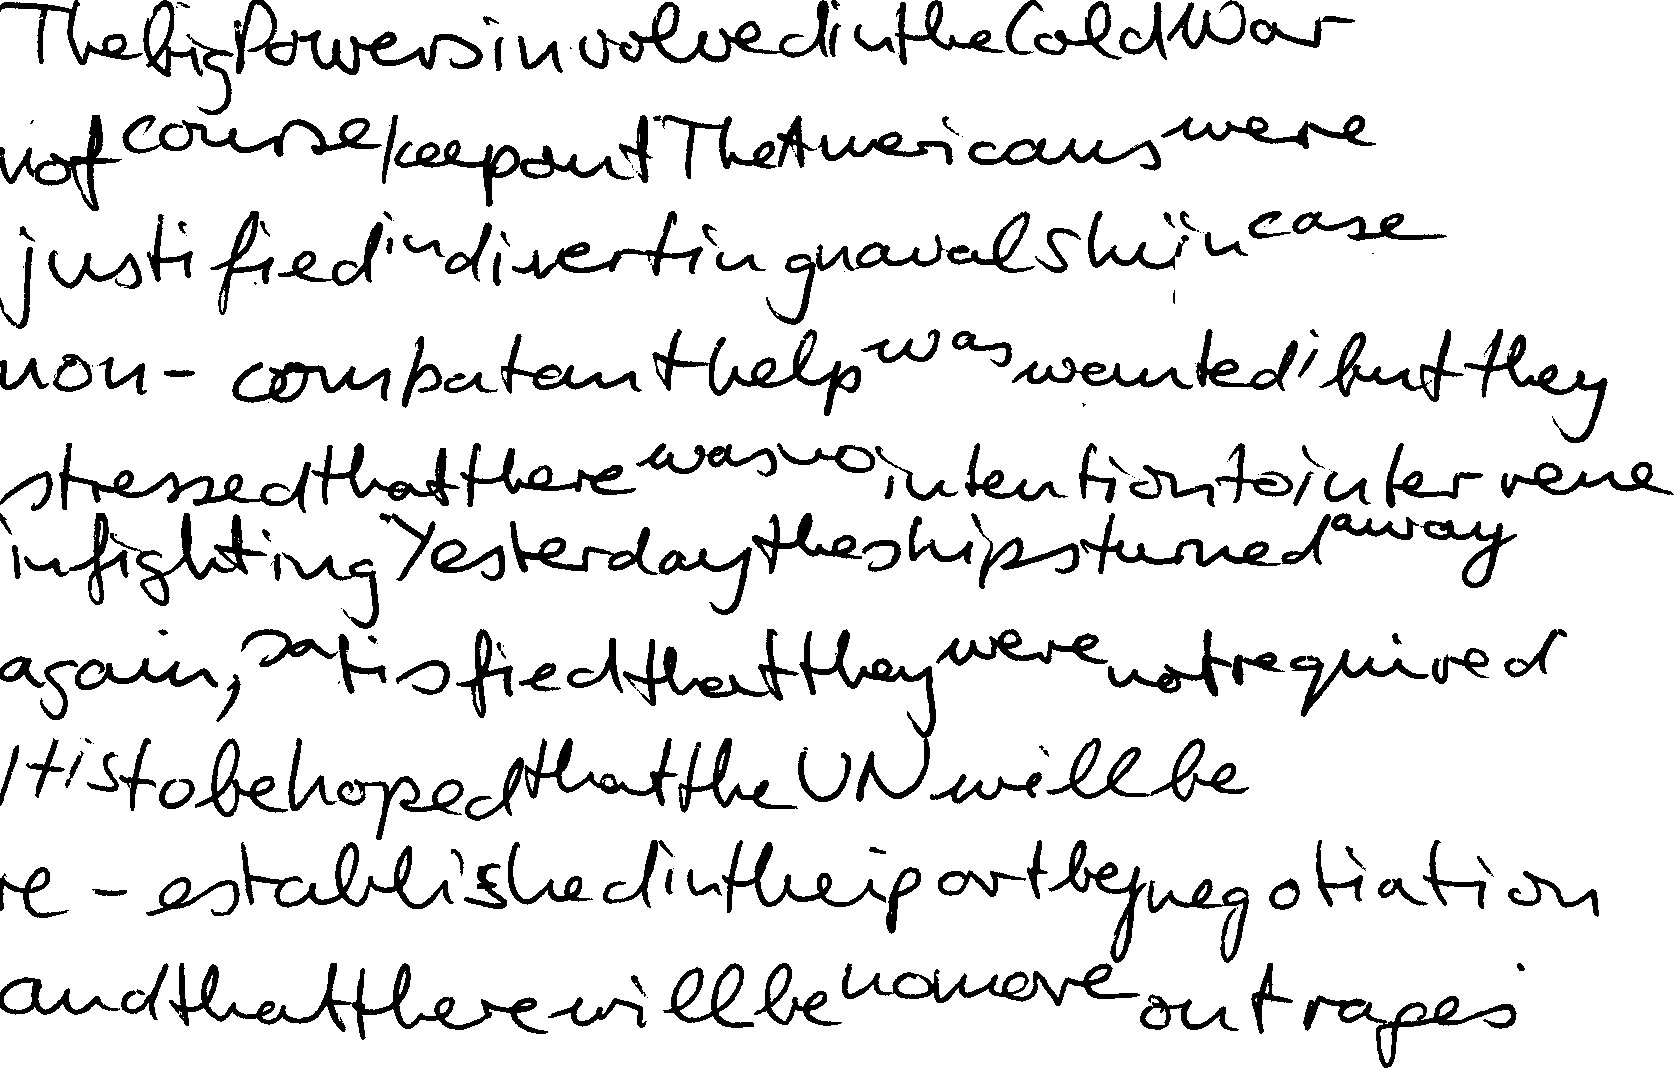 The big Powers involved in the Cold War
not course keep out The Americans were
justified in diverting naval shi in case
non - combatant help was wanted, but they
stressed that there was no intention to intervene
in fighting Yesterday the ships turned away
again, satisfied that they were not required
It is to be hoped that the UN will be
re - established in the port by negotiation
and that there will be no more outrages